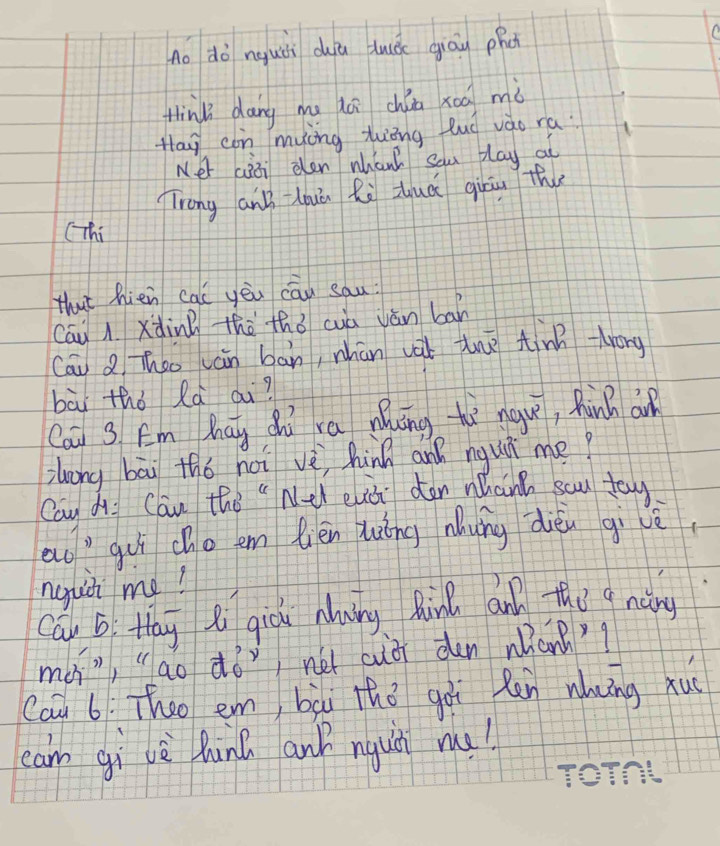 Áo đỏ người đưa trước giậu phơi
Hình dáng mẹ tôi chửa xoá mờ
Hãy còn mường tượng lúc vào ra:
Nét cười đen nhánh sau tay áo
Trong ánh trưa hè trước giậu thưa
(Thi
thực hiện các yêu cầu sau:
Câu 1. Xđịnh thể thơ của văn bản
Câu 2. Theo văn bản, nhân vật trữ tình trong
bài thơ là ai?
Câu 3. Em hãy chỉ ra những từ ngữ, hình ảnh
trong bài thơ nói về hình ảnh người mẹ?
Câu 4: Câu thơ "Nét cười đen nhánh sau tay
áo" gợi cho em liên tưởng những điều gì về
người mẹ!
Câu 5: Hãy lí giải những hình ảnh thơ "nắng
mới", "áo đỏ", nét cười đen nhánh"?
Câu 6: Theo em, bài thơ gợi lên những xúc
cảm gì về hình ảnh người mẹ!
TOTAL